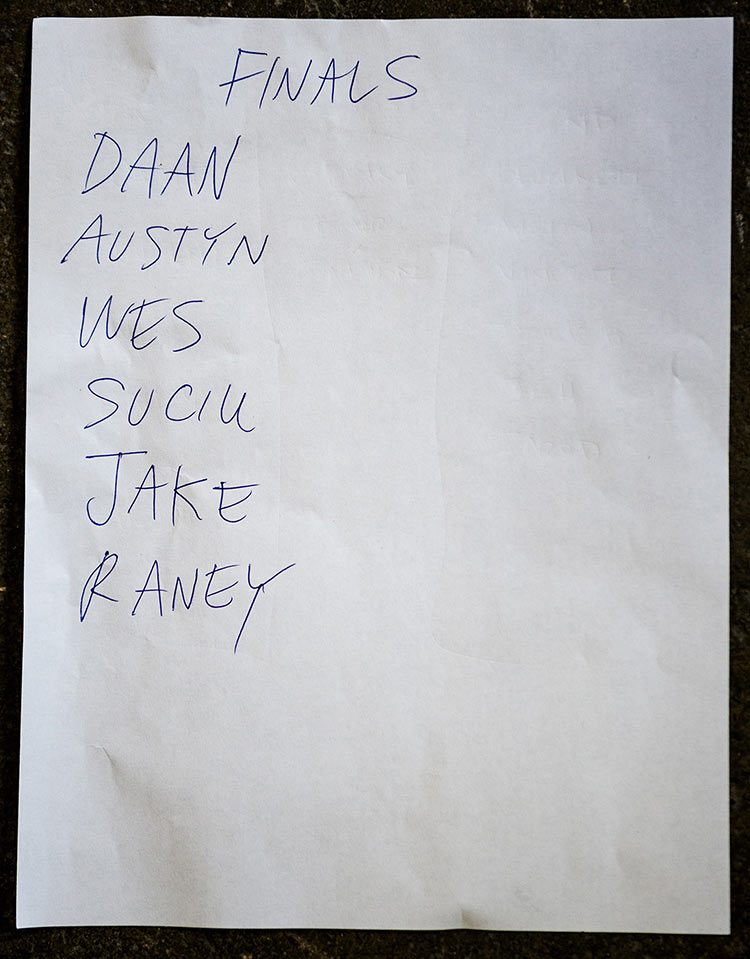 FINALS
DAAN
AUSTYN
WES
SUCIU
JAKE
RANEY